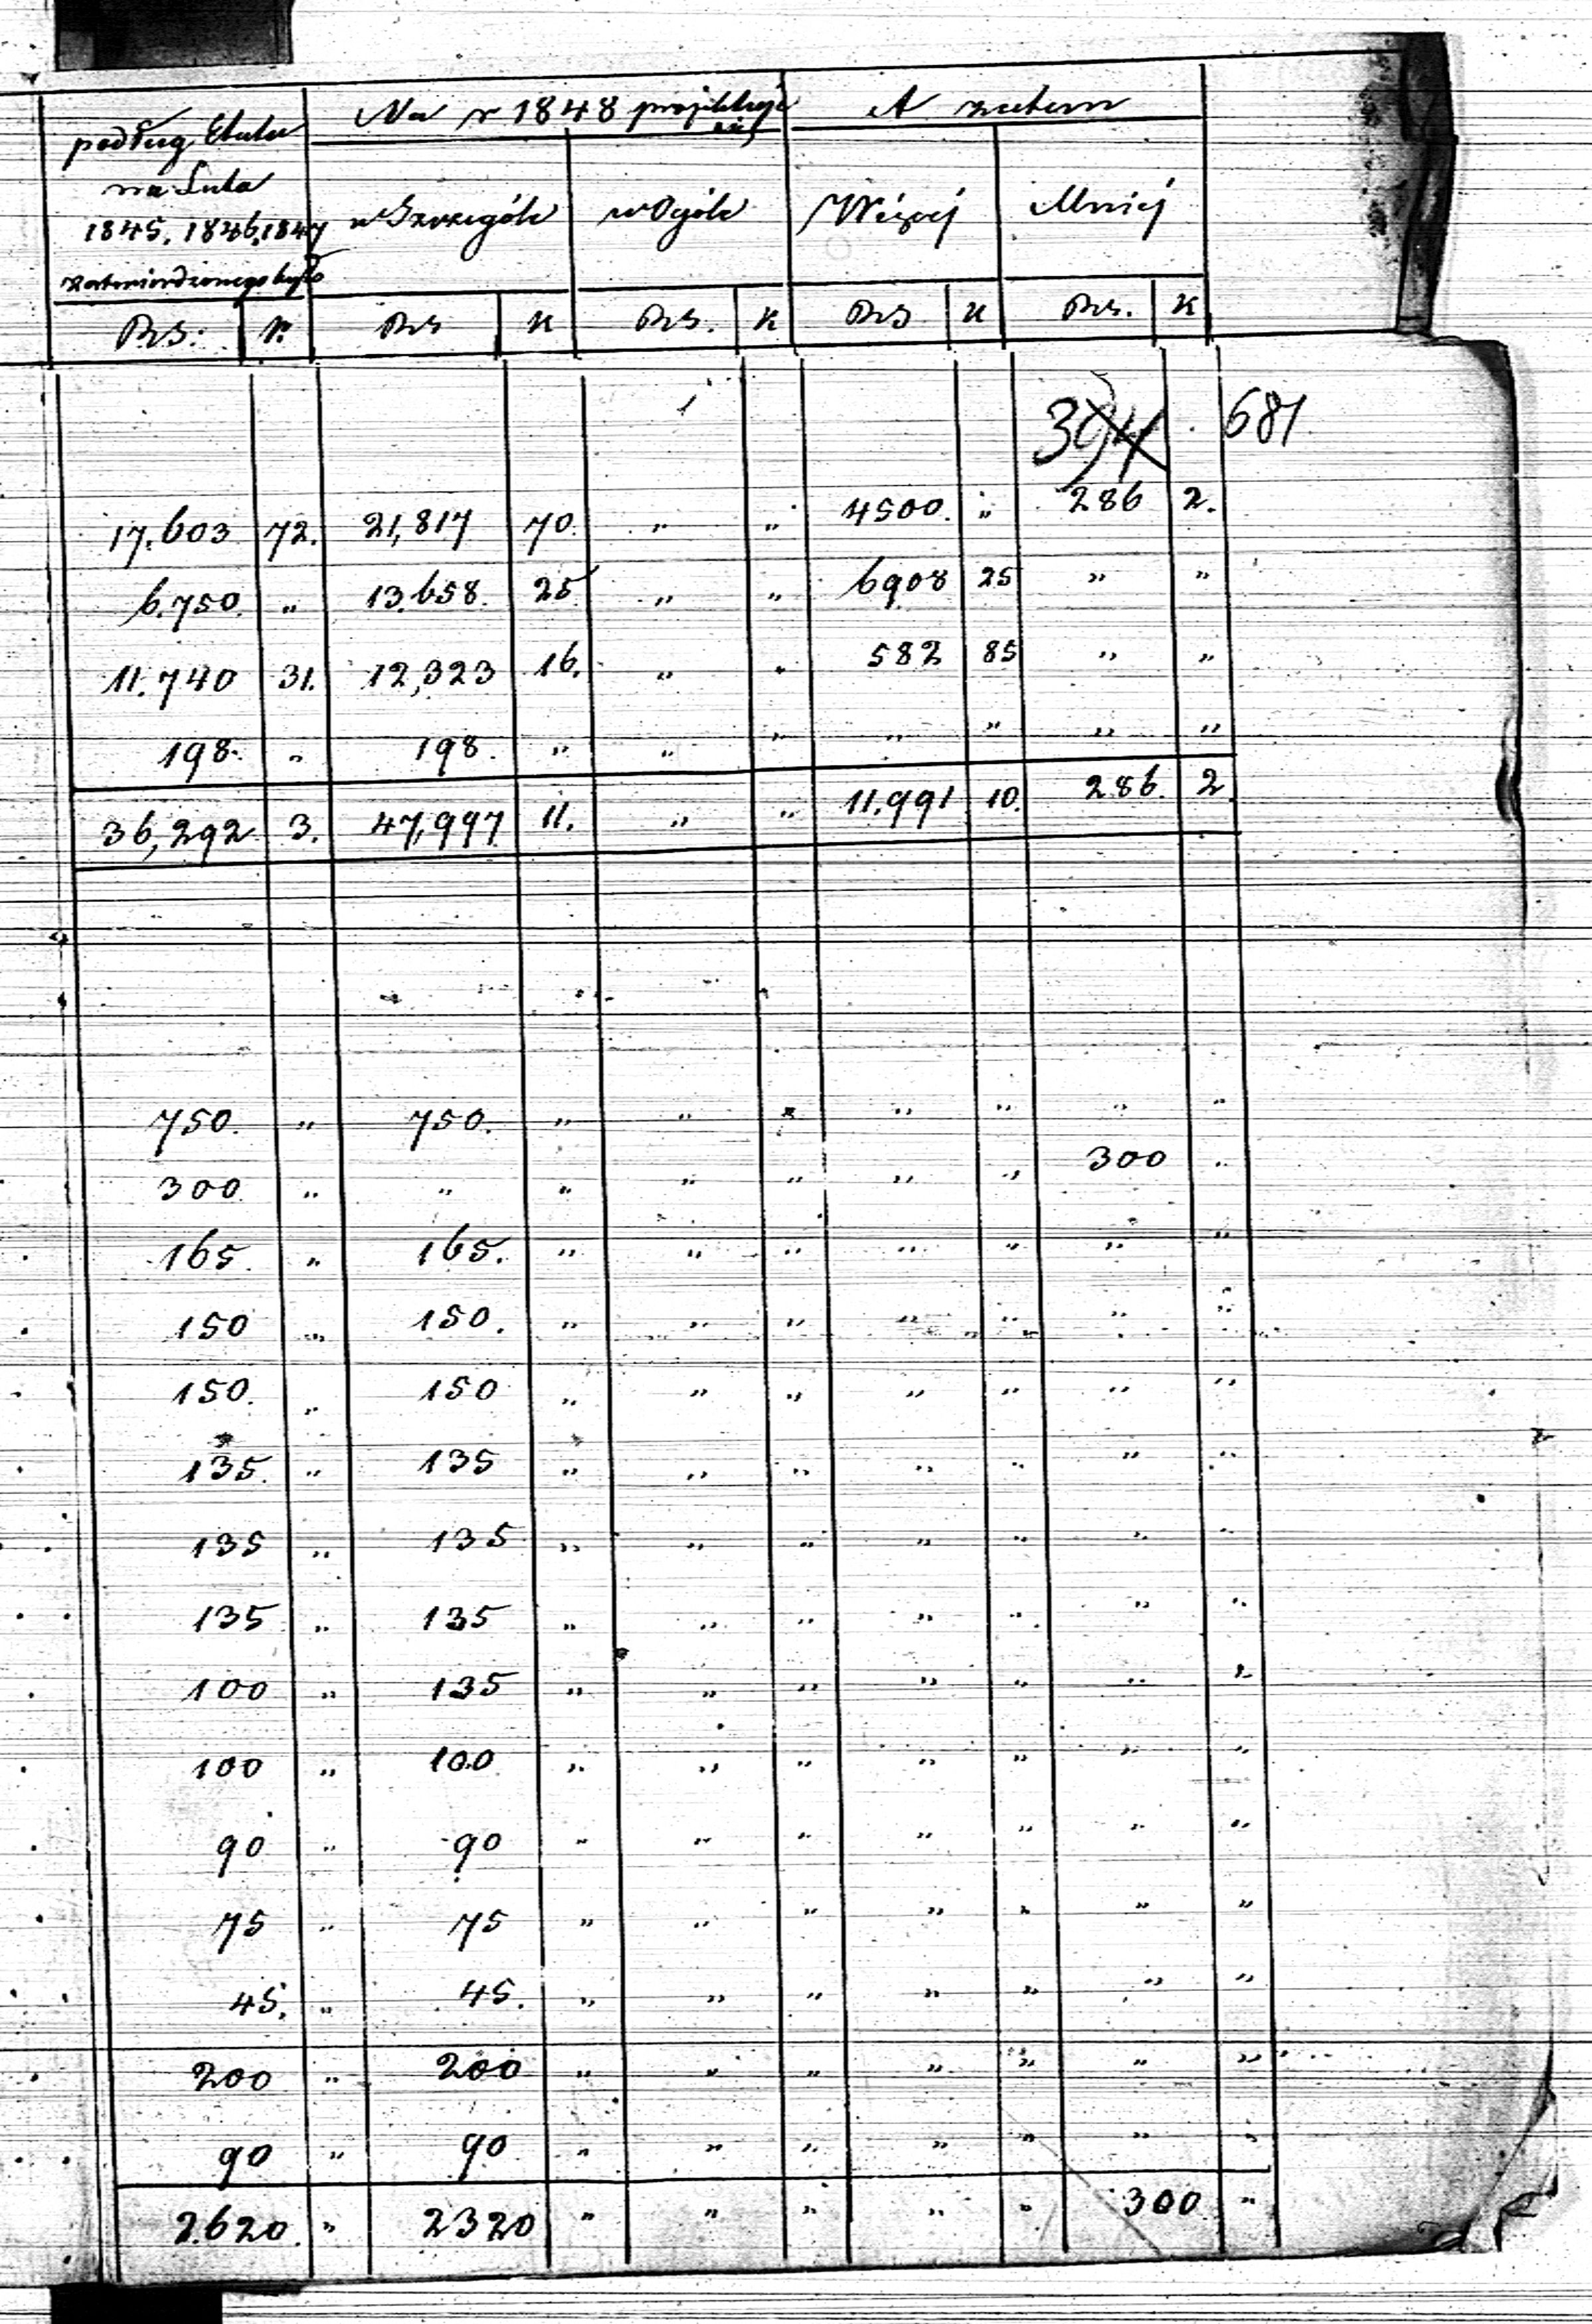 podług Etatu
na Lata
1845, 1846, 1847
zatwierdzonego było
Na r 1848 projektuje
się
A zatem
w Szczególe
w Ogóle
Więcej
Mniej
Rs. K. Rs K Rs. K Rs K Rs. K
394 681
17,603 72. 21,817 70. " " 4500. " 286 2.
6,750. " 13,658. 25 " " 6908 25 " "
11,740 31. 12,323 16. " " 582 85 " "
198. " 198. " " " " " " "
36,292 3. 47,997 11. " " 11,991 10. 286. 2.
750. " 750. " " " " " " "
300 " " " " " " " 300 "
165. " 165. " " " " " " "
150 " 150. " " " " " " "
150. " 150 " " " " " " "
135. " 135 " " " " " " "
135 " 135 " " " " " " "
135 " 135 " " " " " " "
100 " 135 " " " " " " "
100 " 100 " " " " " " "
90 " 90 " " " " " " "
75 " 75 " " " " " " "
45. " 45. " " " " " " "
200 " 200 " " " " " " "
90 " 90 " " " " " " "
2620. " 2320 " " " " " 300 "